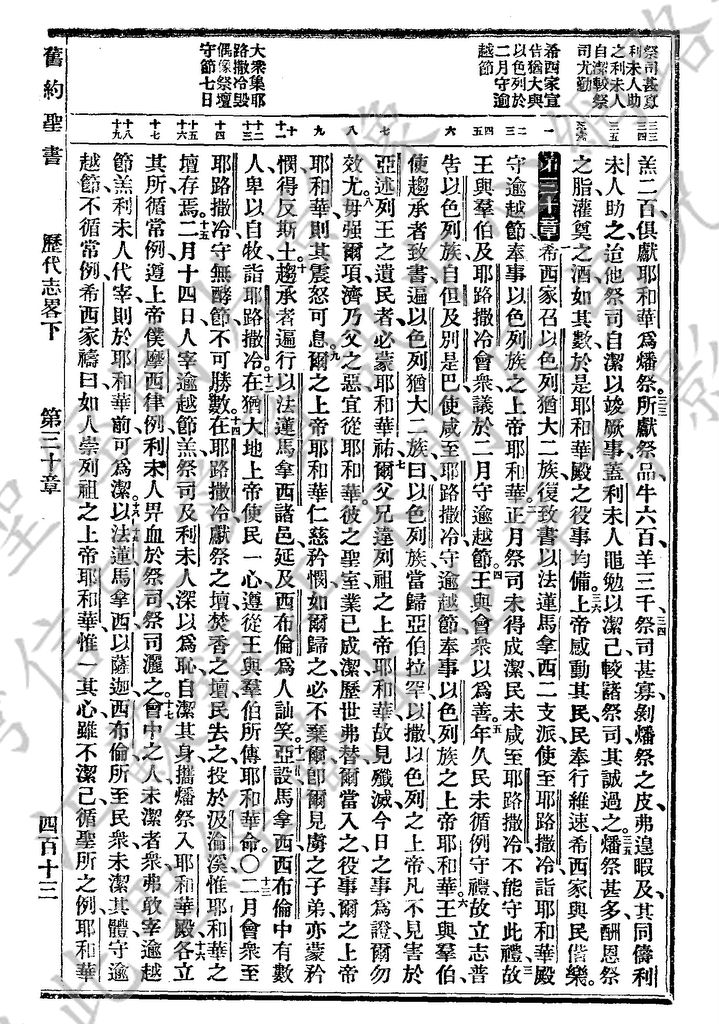 舊約聖書 歷代志畧下 第三十章 四百十三
祭司甚寡
利未人助
之利未人
自潔較祭
司尤勤
希西家宣
告猶大與
以色列於
二月守逾
越節
大衆集耶
路撒冷毀
偶像祭壇
守節七日
羔二百俱獻耶和華爲燔祭所獻祭品牛六百羊三千祭司甚寡剝燔祭之皮弗遑暇及其同儔利
未人助之迨他祭司自潔以竣厥事蓋利未人黽勉以潔己較諸祭司其誠過之燔祭甚多酬恩祭
之脂灌奠之酒如其數於是耶和華殿之役事均備上帝感動其民民奉行維速希西家與民偕樂
第三十章 希西家召以色列猶大二族復致書以法蓮馬拿西二支派使至耶路撒冷詣耶和華殿
守逾越節奉事以色列族之上帝耶和華正月祭司未得成潔民未咸至耶路撒冷不能守此禮故
王與羣伯及耶路撒冷會衆議於二月守逾越節王與會衆以爲善年久民未循例守禮故立志普
告以色列族自但及別是巴使咸至耶路撒冷守逾越節奉事以色列族之上帝耶和華王與羣伯
使趨承者致書遍以色列猶大二族曰以色列族當歸亞伯拉罕以撒以色列之上帝凡不見害於
亞述列王之遺民者必蒙耶和華祐爾父兄違列祖之上帝耶和華故見殲滅今日之事爲證爾勿
效尤毋强爾項濟乃父之惡宜從耶和華彼之聖室業已成潔歷世弗替爾當入之役事爾之上帝
耶和華則其震怒可息爾之上帝耶和華仁慈矜憫如爾歸之必不棄爾卽爾見虜之子弟亦蒙矜
憫得反斯土趨承者遍行以法蓮馬拿西諸邑延及西布倫爲人訕笑亞設馬拿西西布倫中有數
人卑以自牧詣耶路撒冷在猶大地上帝使民一心遵從王與羣伯所傳耶和華命〇二月會衆至
耶路撒冷守無酵節不可勝數在耶路撒冷獻祭之壇焚香之壇民去之投於汲淪溪惟耶和華之
壇存焉二月十四日人宰逾越節羔祭司及利未人深以爲恥自潔其身攜燔祭入耶和華殿各立
其所循常例遵上帝僕摩西律例利未人畀血於祭司祭司灑之會中之人未潔者衆弗敢宰逾越
節羔利未人代宰則於耶和華前可爲潔以法蓮馬拿西以薩迦西布倫所至民衆未潔其體守逾
越節不循常例希西家禱曰如人崇列祖之上帝耶和華惟一其心雖不潔己循聖所之例耶和華